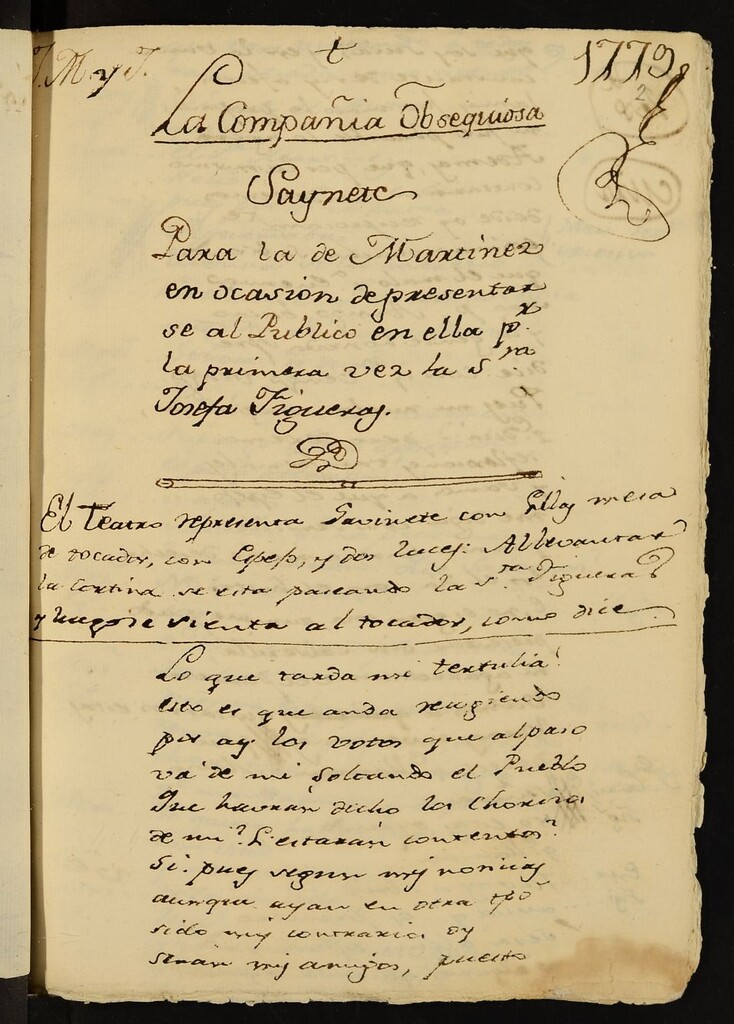 J. M. y J.
1779
La Compañia Obsequiosa
Saynete
Para la de Martinez
en ocasion de presentar
se al Publico en ella p.r
la primera vez la S.ra
Josefa Figueras.
El Teatro representa Gavinete con Sillas mesa
de tocador, con Espejo, y dos luces: Al levantar
la Cortina se esta paseando la S.ra Figueras
y luego se sienta al tocador, como dice
Lo que tarda mi tertulia!
esto es que anda recogiendo
por ay los votos que al paso
vá de mi soltando el Pueblo
Que havrán dicho los Chorizos
de mi? Si estarán contentos?
Si: pues segun mis noticias
aunque ayan en otro tpō
sido mis contrarios oy
serán mis amigos, puesto